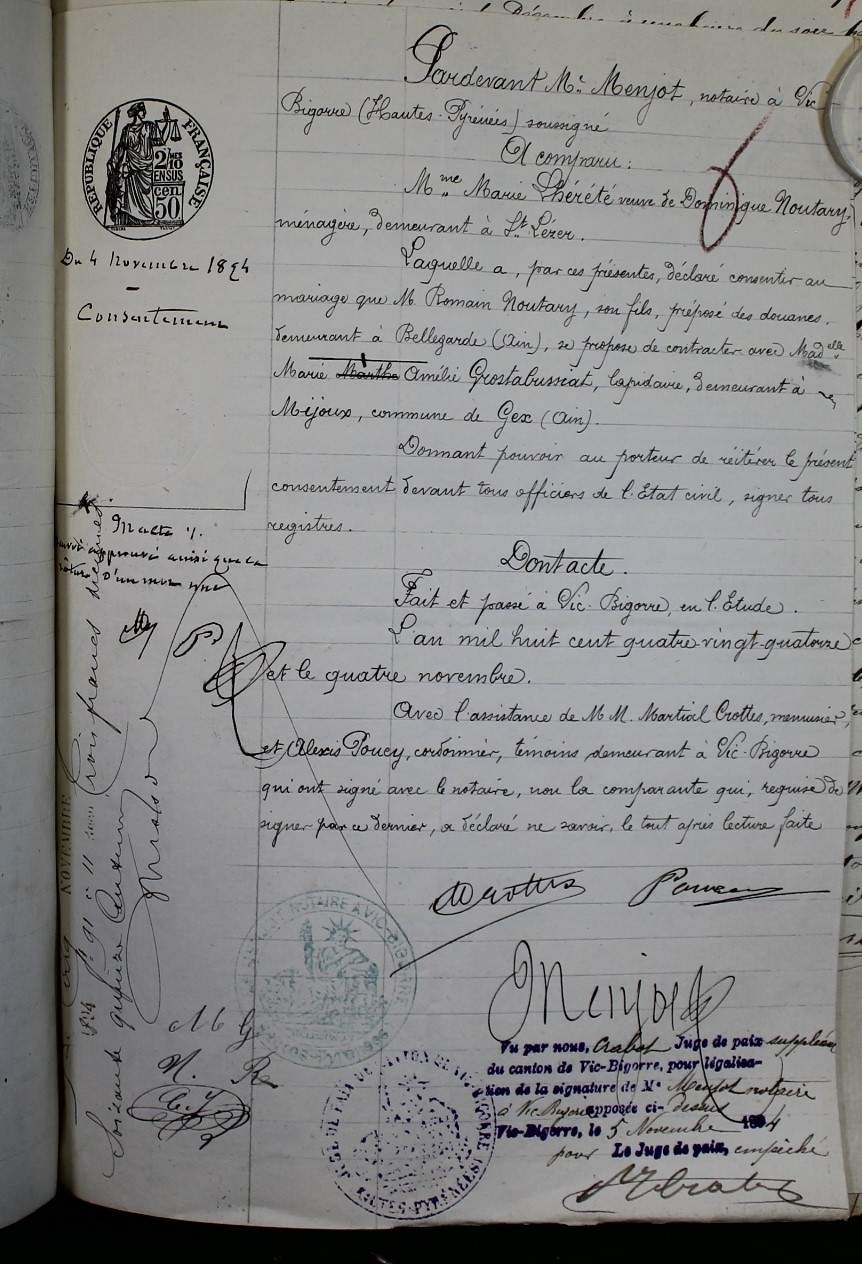 Pardevant Me Menjot, notaire à Vic-
Bigorre (Hautes-Pyrénées) soussigné
A comparu:
Mme Marie Lhérété veuve de Dominique Noutary,
ménagère, demeurant à St. Lézer.
Laquelle a, par ces présentes, déclaré consentir au
mariage que M. Romain Noutary, son fils, préposé des douanes,
demeurant à Bellegarde (Ain), se propose de contracter avec Madelle
Marie Marthe Amélie Grostabussiat, lapidaire, demeurant à
Mijoux, commune de Gex (Ain).
Donnant pouvoir au porteur de réitérer le présent
consentement devant tous officiers de l'Etat civil, signer tous
registres.
Dont acte.
Fait et passé à Vic-Bigorre, en l'Etude.
L'an mil huit cent quatre-vingt-quatorze
et le quatre novembre.
Avec l'assistance de M.M. Martial Crottes, menuisier,
et Alexis Poucy, cordonnier, témoins demeurant à Vic-Bigorre
qui ont signé avec le notaire, non la comparante qui, requise de
signer par ce dernier, a déclaré ne savoir, le tout après lecture faite
Crottes
Menjot
Vu par nous, Crabot Juge de paix suppléant
du canton de Vic-Bigorre, pour légalisa-
tion de la signature de Me Menjot notaire
à Vic Bigorre apposée ci-dessus
Vic-Bigorre, le 5 Novembre 1894
pour Le Juge de paix, empêché
RÉPUBLIQUE FRANÇAISE
2/10mes
EN SUS
50 CEN
Du 4 novembre 1894
-
Consentement
approuvé ainsi que la
rature d'un mot nul
trois francs
NOVEMBRE
NOTAIRE A VIC-BIGORRE
HAUTES-PYRÉNÉES